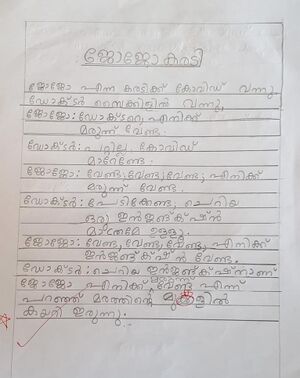 ജോജോ കരടി
ജോജോ എന്ന കരടിക്ക് കോവിഡ് വന്നു
ഡോക്ടർ സൈക്കിളിൽ വന്നു.
ജോജോ: ഡോക്ടറെ എനിക്ക്
മരുന്ന് വേണ്ട.
ഡോക്ടർ: പറ്റില്ല. കോവിഡ്
മാറേണ്ടേ.
ജോജോ: വേണ്ട, വേണ്ട, വേണ്ട, എനിക്ക്
മരുന്ന് വേണ്ട.
ഡോക്ടർ: പേടിക്കേണ്ട, ചെറിയ
ഒരു ഇൻജങ്ക്ഷൻ
മാത്രമേ ഉള്ളൂ.
ജോജോ: വേണ്ട, വേണ്ട, വേണ്ട, എനിക്ക്
ഇൻജങ്ക്ഷൻ വേണ്ട.
ഡോക്ടർ: ചെറിയ ഇൻജങ്ക്ഷനാണ്
ജോജോ എനിക്ക് വേണ്ട എന്ന്
പറഞ്ഞ് മരത്തിന്റെ മുകളിൽ
കയറി ഇരുന്നു.